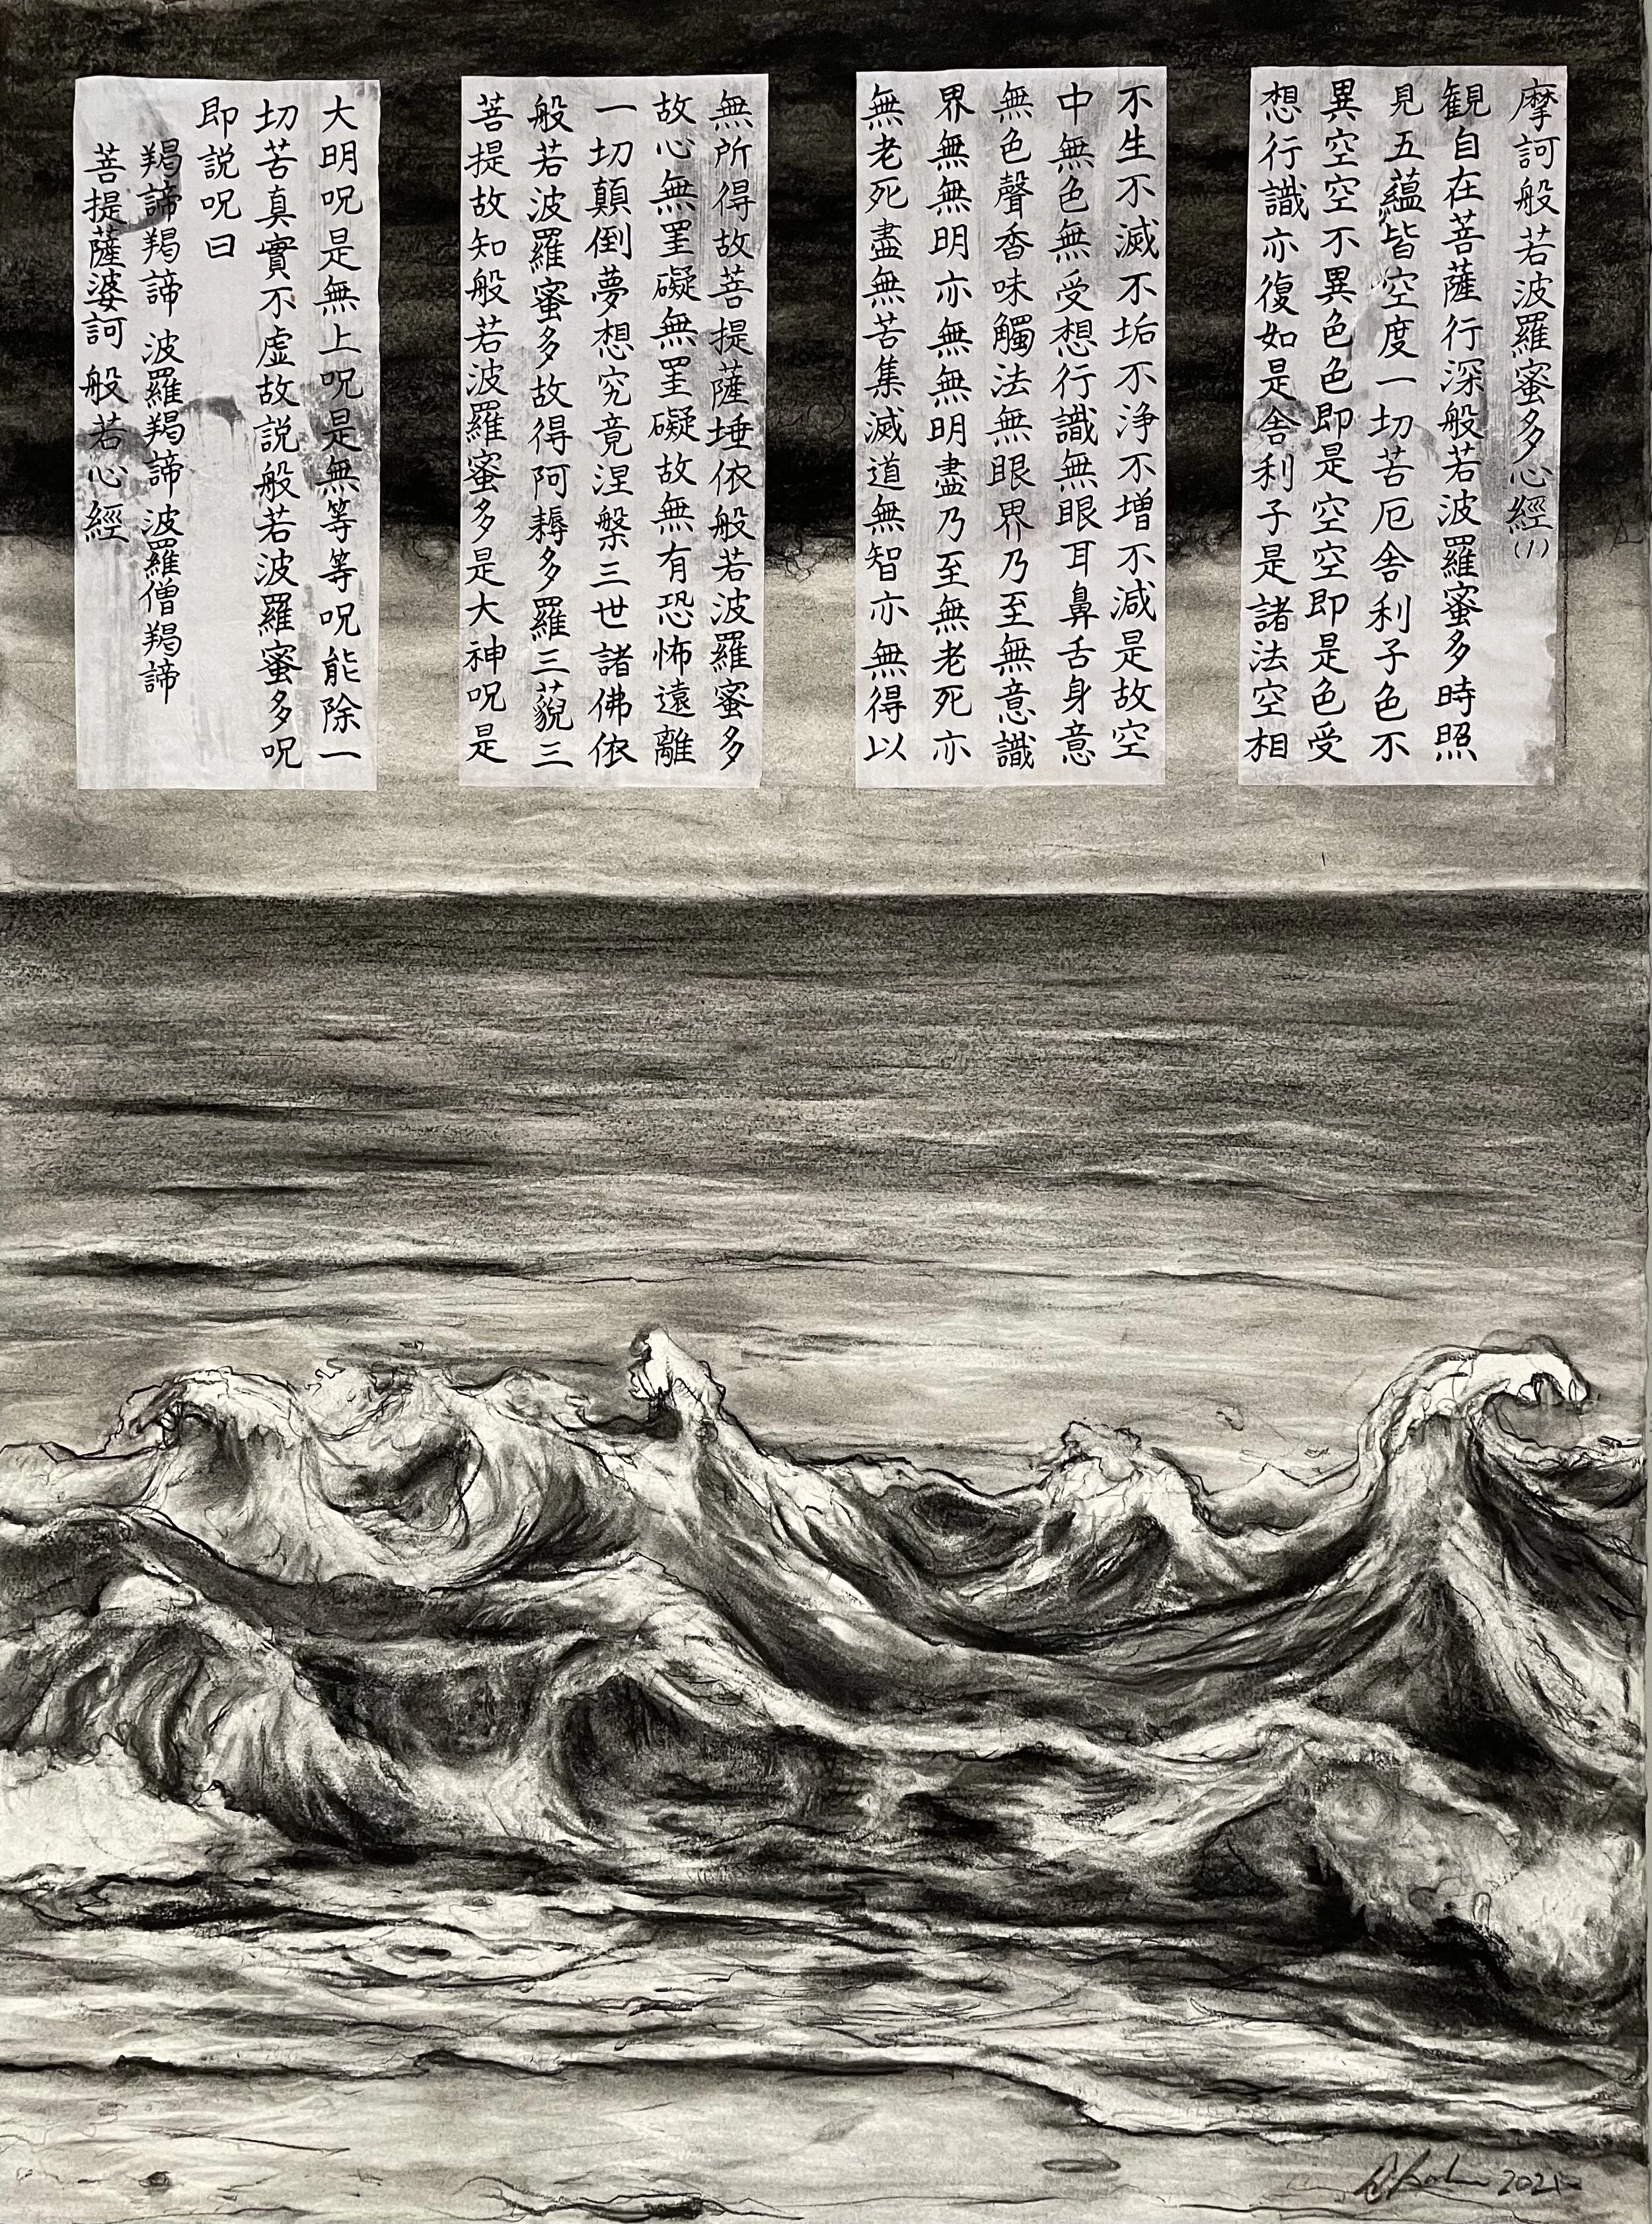 摩訶般若波羅蜜多心經(1)
観自在菩薩行深般若波羅蜜多時照
見五蘊皆空度一切苦厄舎利子色不
異空空不異色色即是空空即是色受
想行識亦復如是舎利子是諸法空相
不生不滅不垢不浄不増不減是故空
中無色無受想行識無眼耳鼻舌身意
無色聲香味觸法無眼界乃至無意識
界無無明亦無無明盡乃至無老死亦
無老死盡無苦集滅道無智亦無得以
無所得故菩提薩埵依般若波羅蜜多
故心無罣礙無罣礙故無有恐怖遠離
一切顛倒夢想究竟涅槃三世諸佛依
般若波羅蜜多故得阿耨多羅三藐三
菩提故知般若波羅蜜多是大神呪是
大明呪是無上呪是無等等呪能除一
切苦真實不虚故説般若波羅蜜多呪
即説呪曰
羯諦羯諦 波羅羯諦 波羅僧羯諦
菩提薩婆訶 般若心經
2021